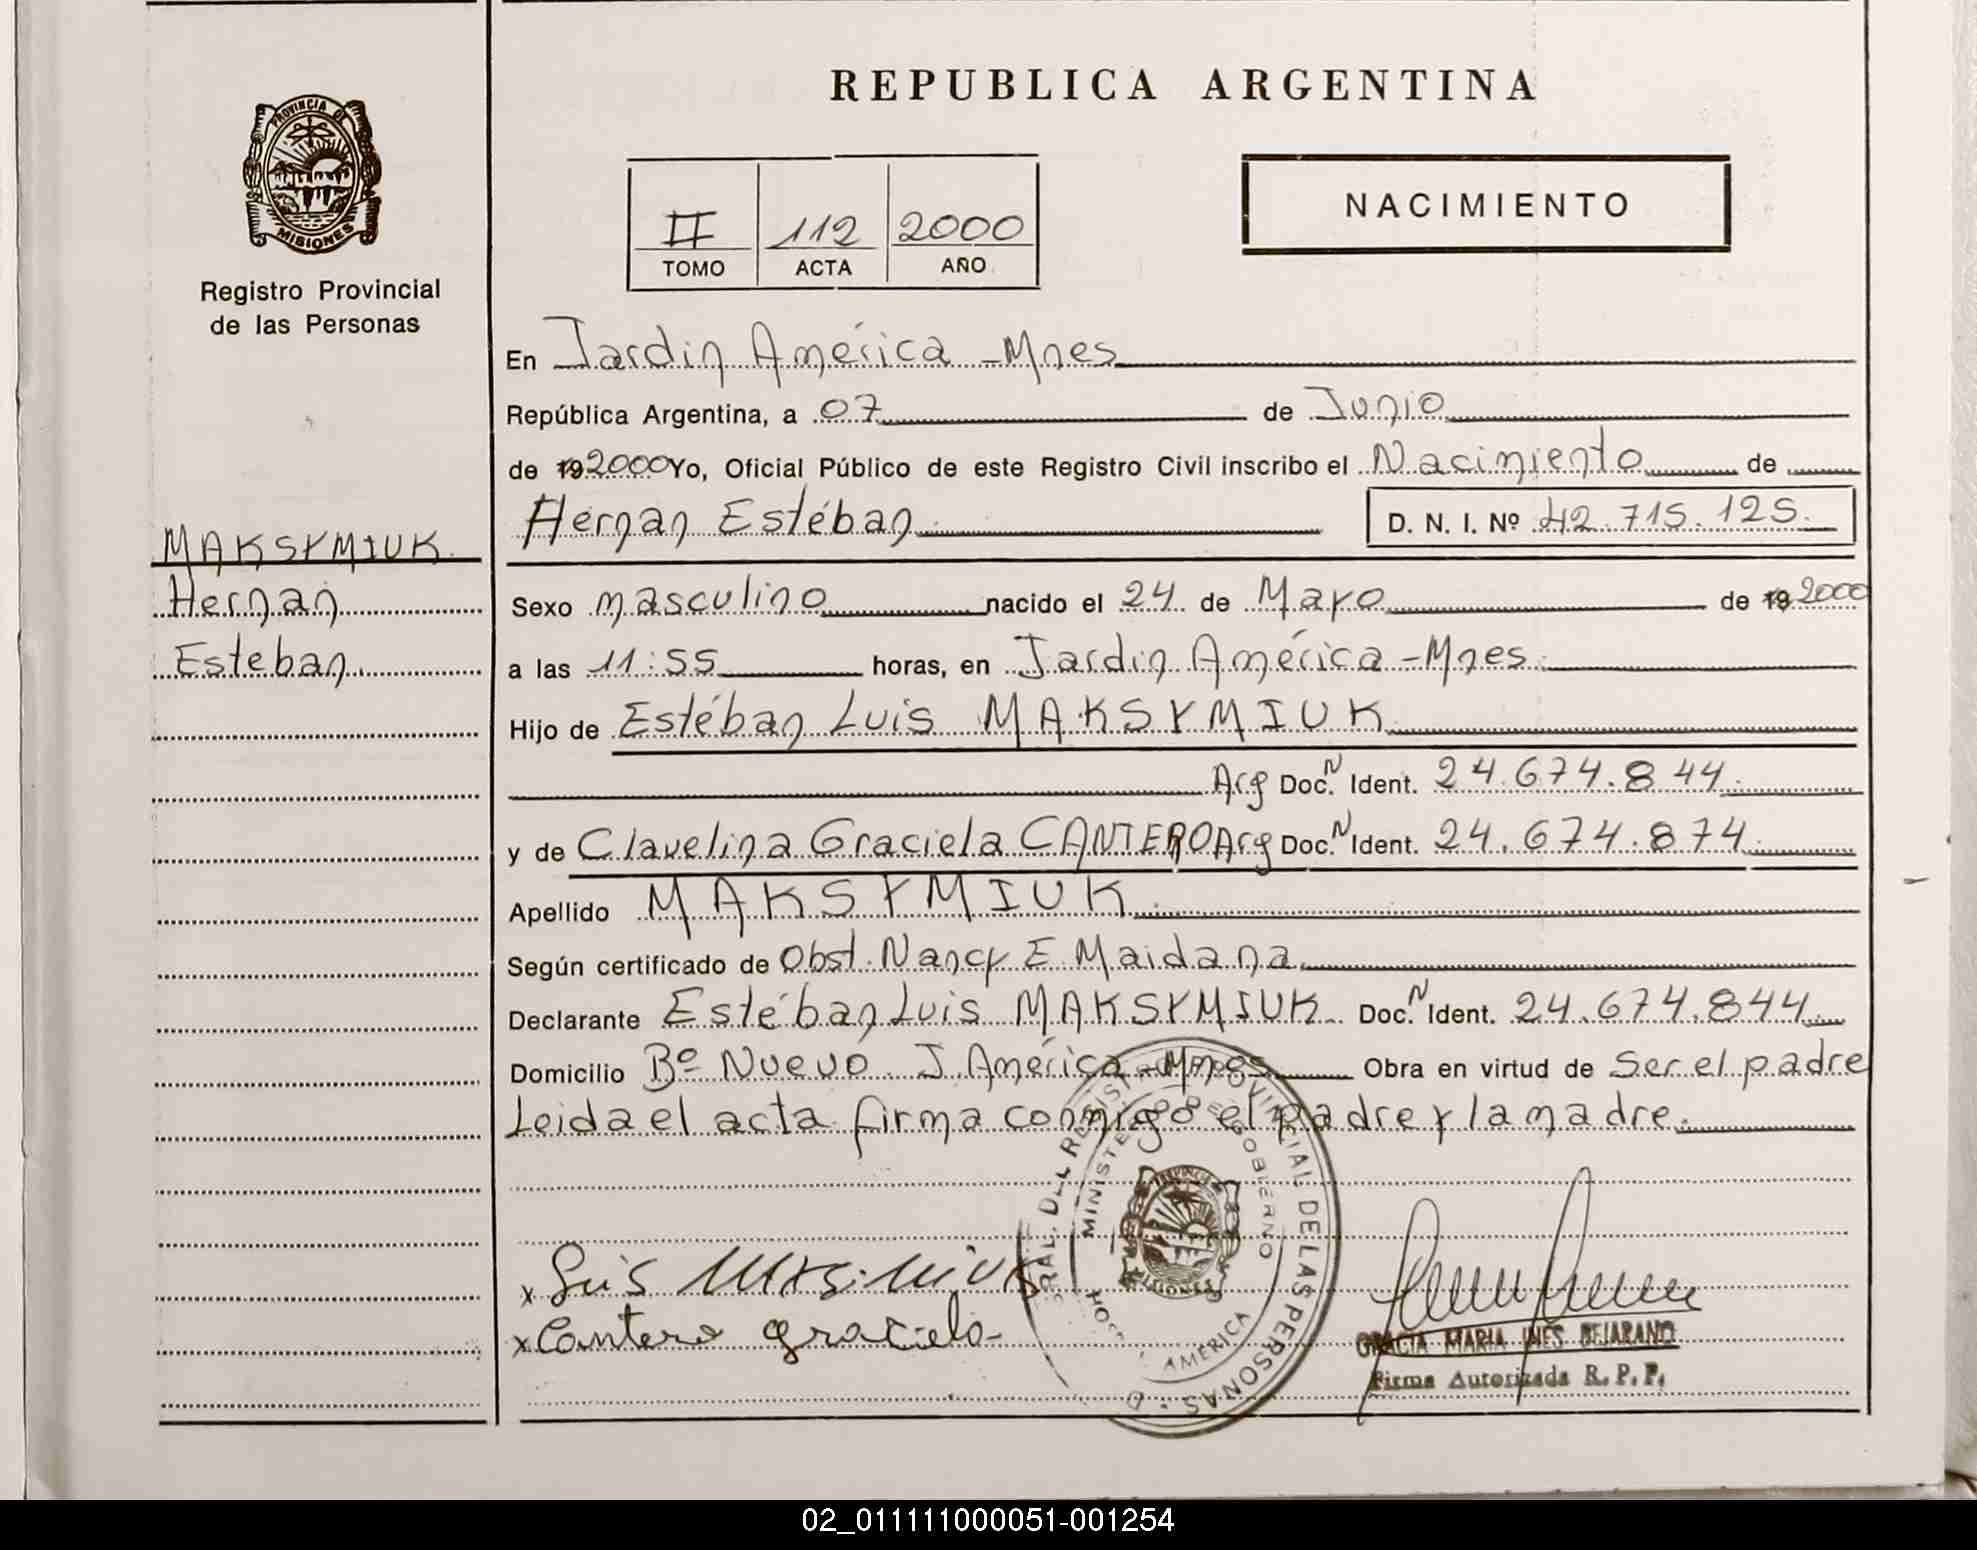 REPUBLICA ARGENTINA
PROVINCIA DE
MISIONES
Registro Provincial
de las Personas
II 112 2000
TOMO ACTA AÑO
NACIMIENTO
En Jardin América - Mnes
República Argentina, a 07 de Junio
de 19 2000 Yo, Oficial Público de este Registro Civil inscribo el Nacimiento de
Hernan Estéban D. N. I. Nº 42.715.125.
MAKSYMIUK
Hernan
Esteban
Sexo masculino nacido el 24 de Mayo de 19 2000
a las 11:55 horas, en Jardin América - Mnes.
Hijo de Estéban Luis MAKSYMIUK
Arg Doc. N Ident. 24.674.844.
y de Clavelina Graciela CANTERO Arg Doc. N Ident. 24.674.874.
Apellido MAKSYMIUK.
Según certificado de Obst. Nancy E. Maidana.
Declarante Estéban Luis MAKSYMIUK. Doc. N Ident. 24.674.844.
Domicilio Bº Nuevo. J. América - Mnes Obra en virtud de Ser el padre
Leida el acta firma conmigo el padre y la madre.
MINISTE GOBIERNO
DEL REGIST PROVINCIAL DE LAS PERSONAS
AMERICA
MISIONES
x Luis
x Cantero Graciela
GRACIA MARIA INES BEJARANO
Firma Autorizada R. P. P.
02_011111000051-001254